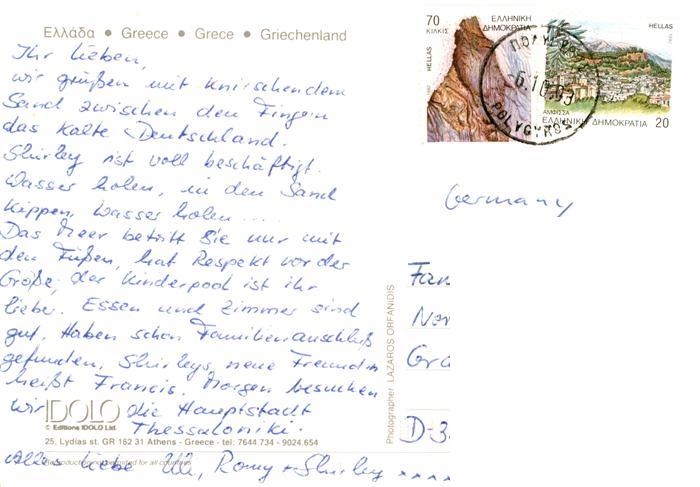 Ελλάδα • Greece • Grece • Griechenland
Ihr Lieben,
wir grüßen mit knirschendem
Sand zwischen den Fingern
das kalte Deutschland.
Shirley ist voll beschäftigt.
Wasser holen, in den Sand
kippen, Wasser holen ....
Das Meer betritt Sie nur mit
den Füßen, hat Respekt vor der
Größe; der Kinderpool ist ihr
lieber. Essen und Zimmer sind
gut. Haben schon Familienanschluß
gefunden, Shirleys neue Freundin
heißt Francis. Morgen besuchen
wir die Hauptstadt
Thessaloniki.
Alles Liebe Uli, Romy + Shirley
IDOLO
© Editions IDOLO Ltd.
25, Lydias st. GR 162 31 Athens - Greece - tel: 7644.734 - 9024.654
for all countries
Photographer: LAZAROS ORFANIDIS
70
ΚΙΛΚΙΣ
ΕΛΛΗΝΙΚΗ
ΔΗΜΟΚΡΑΤΙΑ
HELLAS
1992
HELLAS
ΑΜΦΙΣΣΑ
ΕΛΛΗΝΙΚΗ ΔΗΜΟΚΡΑΤΙΑ
20
POLYGYROS
Germany
Fam
Nor
Gra
D-3